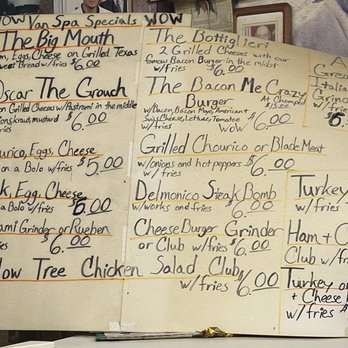 WOW Van Spa Specials WOW
The Big Mouth
m, Eggs, Cheese on Grilled Texas
Bread w/fries $6.00
Oscar The Grouch
Grilled Cheeses w/Pastrami in the middle
mustard
fries $6.00
ourico, Eggs, Cheese
on a Bolo w/fries $5.00
k, Egg, Cheese
n a Bolo
w/fries $6.00
ami Grinder or Rueben
w/fries $6.00
low Tree Chicken Salad Club
w/fries $6.00
The Bottiglieri
2 Grilled Cheeses with our
famous Bacon Burger in the middle
w/fries $6.00
The Bacon Me Crazy
Burger
w/Bacon, Bacon Mayo, American
Swiss Cheese, Lettuce, Tomatoe
w/fries WOW $6.00
Grilled Chourico or Blade Meat
w/onions and hot peppers $6.00
w/fries
Delmonico Steak Bomb
w/works and fries $6.00
Cheese Burger Grinder
or Club w/fries $6.00
A
Grea
Italia
Grinde
w/frie
$
Turkey
w/fries
Ham + C
Club w/fr
Turkey or
+ Cheese
w/fries